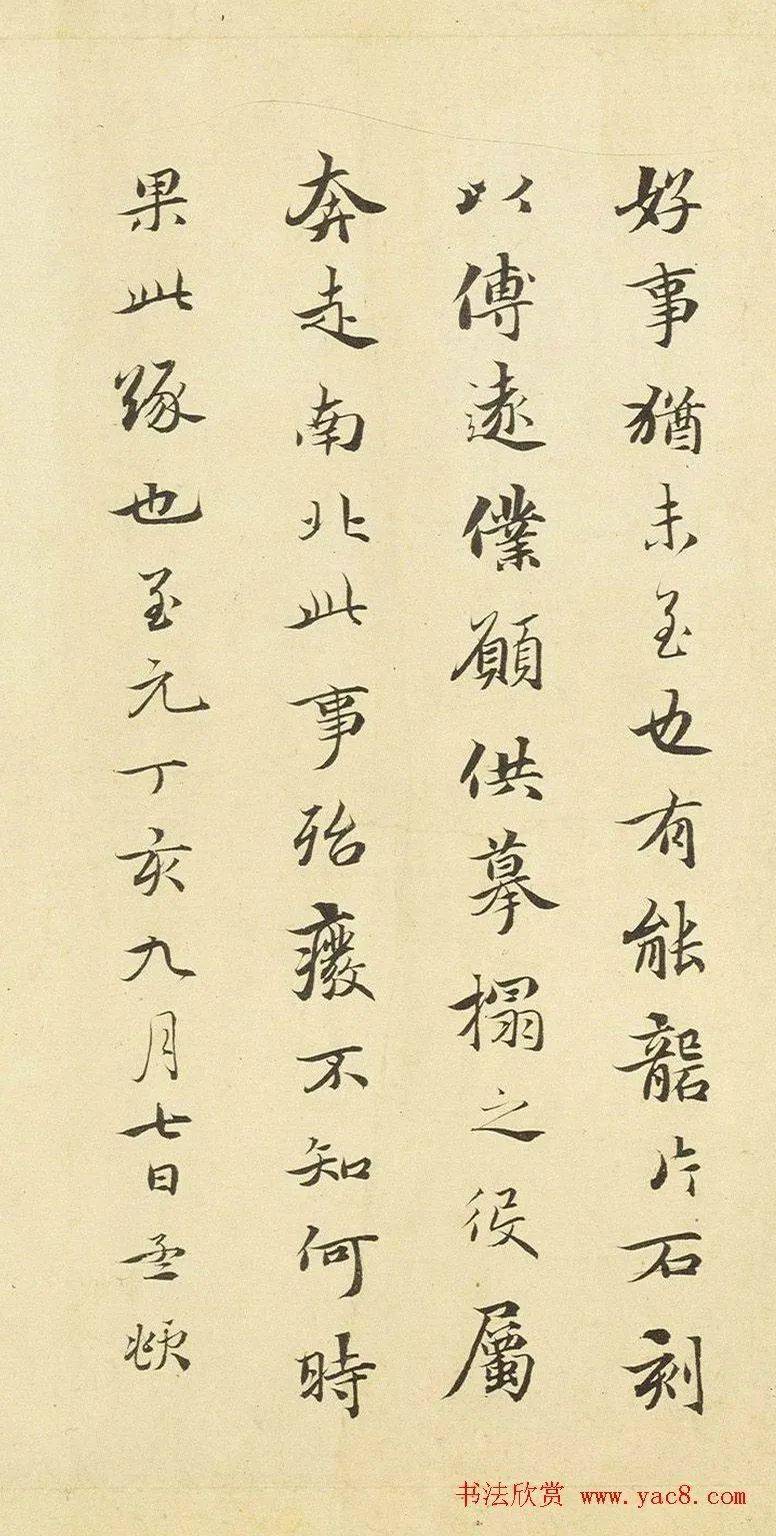 好事猶未至也有能礱片石刻
以傳遠僕願供摹搨之役屬
奔走南北此事殆癈不知何時
果此緣也至元丁亥九月七日孟頫
书法欣赏 www.yac8.com